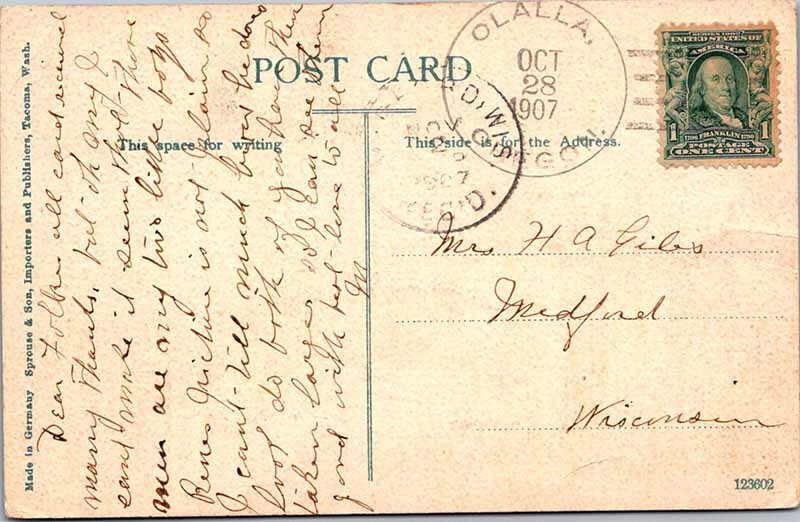 POST CARD
This space for writing
This side is for the Address.
Made in Germany Sprouse & Son, Importers and Publishers, Tacoma, Wash.
OLALLA,
OCT
28
1907
OREGON.
1907
REC'D.
SERIES 1902
UNITED STATES OF
AMERICA
1 FRANKLIN 1
POSTAGE
ONE CENT
Mrs H A Giles
Medford
Wisconsin
Dear Folks all card received
many thanks. but oh my I
cant make it seem that those
men are my two little boys
Renes picture is not plain so
I cant tell much how he does
look do both of you have them
taken larger so I can see them
good with best love to all
M
123602